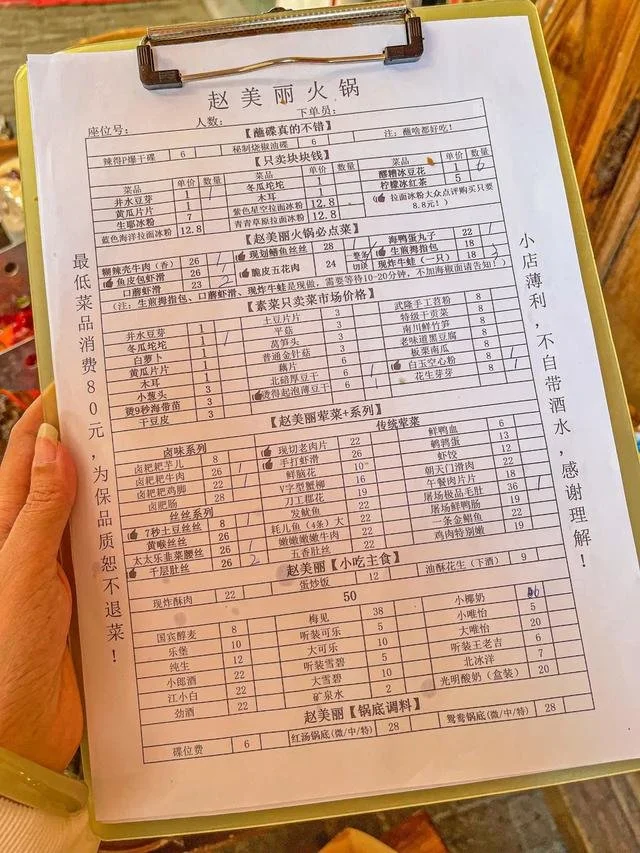 赵美丽火锅
座位号： 人数： 下单员：
【蘸碟真的不错】
辣得P爆干碟 6 秘制烧椒油碟 6 注：蘸啥都好吃！
【只卖块块钱】
菜品 单价 数量 菜品 单价 数量 菜品 单价 数量
井水豆芽 1 冬瓜坨坨 1 醪糟冰豆花 6
黄瓜片片 1 木耳 1 柠檬冰红茶 5
生耶冰粉 紫色星空拉面冰粉 12.8 拉面冰粉大众点评购买只要
蓝色海洋拉面冰粉 12.8 青青草原拉面冰粉 12.8 8.8元！）
【赵美丽火锅必点菜】
糊辣壳牛肉（香） 26 1 现划鳝鱼丝丝 28 海鸭蛋丸子 22 1
鱼皮包虾滑 26 1 脆皮五花肉 24 整条 切块 生煎拇指包 18
口蘑虾滑 23 2 现炸牛蛙（一只） 18 3
（注：生煎拇指包、口蘑虾滑、现炸牛蛙是现做，需要等待10-20分钟，不加海椒面请告知！）
【素菜只卖菜市场价格】
井水豆芽 1 土豆片片 3 武隆手工苕粉 8
冬瓜坨坨 1 平菇 3 特级干贡菜 8
白萝卜 1 莴笋头 3 南川鲜竹笋 8
黄瓜片片 1 普通金针菇 3 老味道黑豆腐 8
木耳 1 藕片 3 板栗南瓜 8
小葱头 3 北碚厚豆干 6 白玉空心粉 8
烫9秒海带苗 3 烫得起泡薄豆干 6 花生芽芽 8
干豆皮 3
【赵美丽荤菜+系列】
卤味系列 传统荤菜
卤粑粑芋儿 8 现切老肉片 22 鲜鸭血 6
卤粑粑牛肉 26 手打虾滑 26 鹌鹑蛋 13
卤粑粑鸡脚 22 鲜脑花 10 虾饺 12
卤肥肠 28 V字型蟹柳 16 朝天门滑肉 22
丝丝系列 刀工郡花 19 午餐肉片片 18
7秒土豆丝丝 8 发鱿鱼 22 屠场极品毛肚 36
黄喉丝丝 26 耗儿鱼（4条）大 22 屠场鲜鸭肠 19
太太乐韭菜腰丝 26 嫩嫩嫩嫩牛肉 22 一条金鲳鱼 22
千层肚丝 26 2 五香肚丝 22 鸡肉特别嫩 19
赵美丽【小吃主食】
现炸酥肉 22 蛋炒饭 12 油酥花生（下酒） 9
50
国宾醇麦 8 梅见 38 小椰奶
乐堡 10 听装可乐 5 小唯怡 5
纯生 12 大可乐 10 大唯怡 20
小郎酒 22 听装雪碧 5 听装王老吉 6
江小白 22 大雪碧 10 北冰洋 7
劲酒 22 矿泉水 2 光明酸奶（盒装） 20
赵美丽【锅底调料】
碟位费 6 红汤锅底(微/中/特) 28 鸳鸯锅底(微/中/特) 28
最低菜品消费80元，为保品质恕不退菜！
小店薄利，不自带酒水，感谢理解！